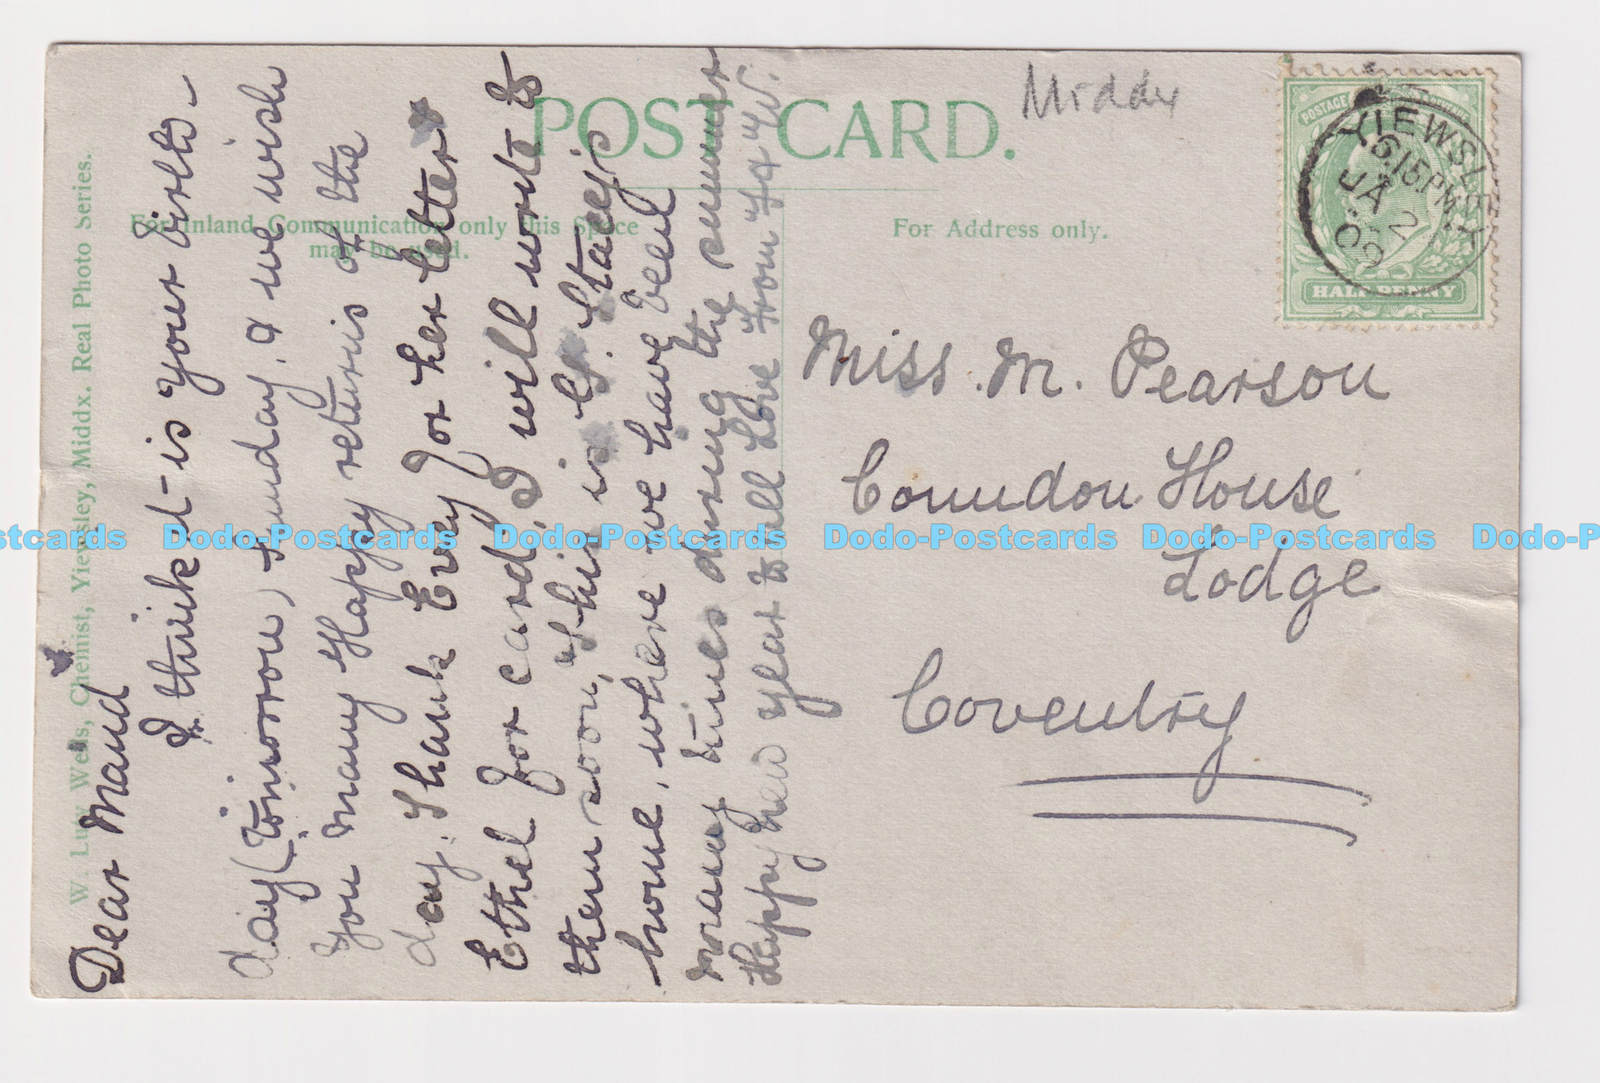 POST CARD.
Middx
For Inland Communication only this Space
may be used.
For Address only.
W. Luv Wells, Chemist, Yiewsley, Middx. Real Photo Series.
POSTAGE
YIEWSLEY
6.15 PM
JA 2
09
HALF PENNY
Dear Maud
I think it is your birth-
day (tomorrow) Sunday, & we wish
you many Happy returns of the
day. Thank Evey for her letter &
Ethel for card, I will write to
them soon, this is Ct. Stacey's
home, where we have been
many times during the summer
Happy New Year to all Love from F & W.
Miss. M. Pearson
Coundon House
Lodge
Coventry
Dodo-Postcards Dodo-Postcards Dodo-Postcards Dodo-Postcards